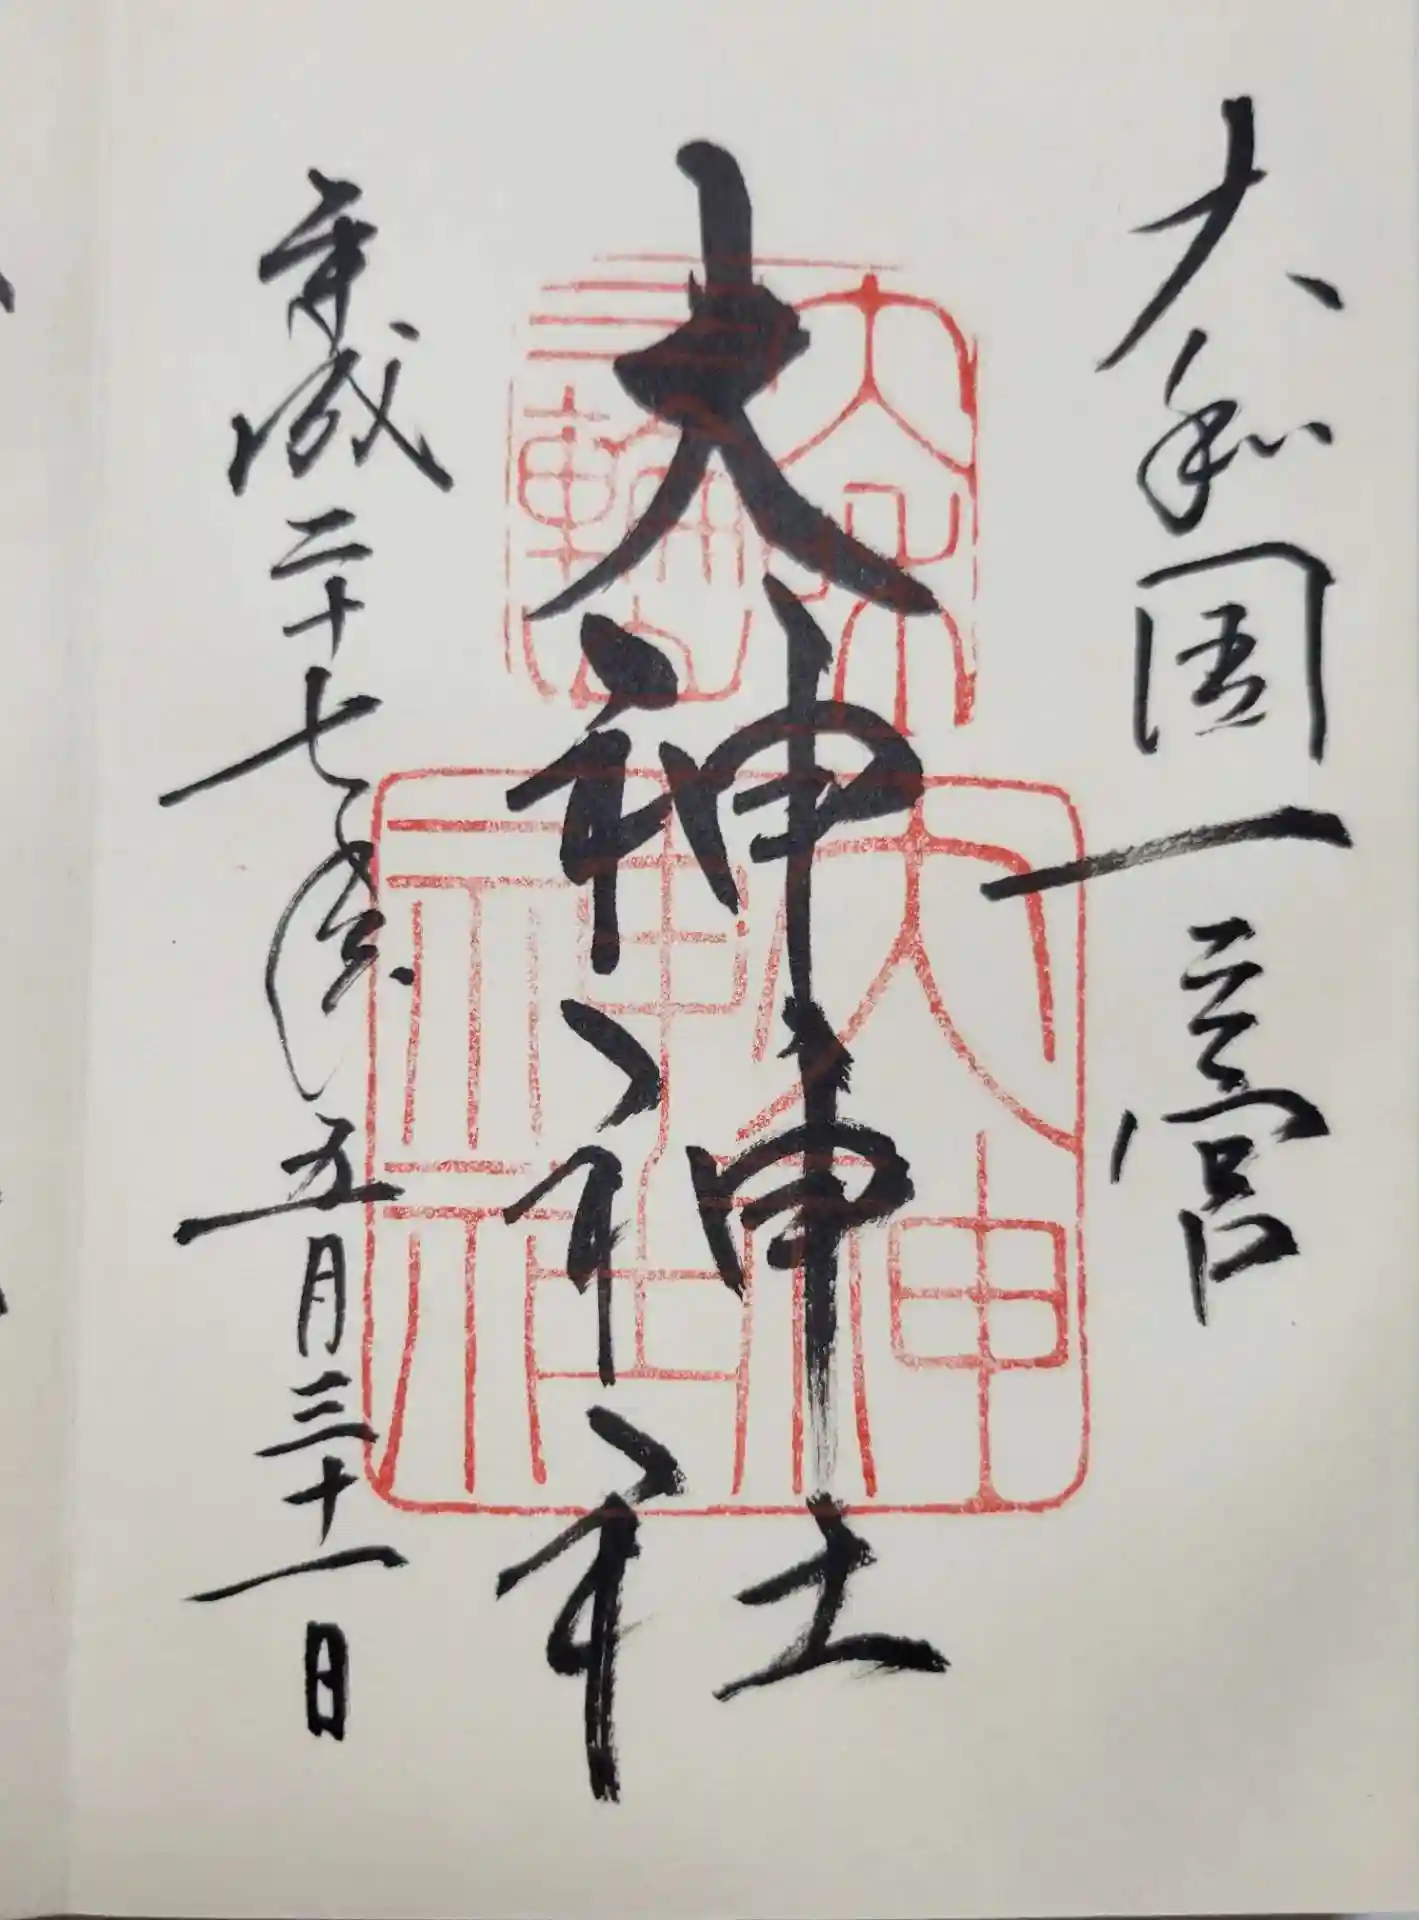 大和国一之宮
大神神社
平成二十七年五月三十一日
大神
神社